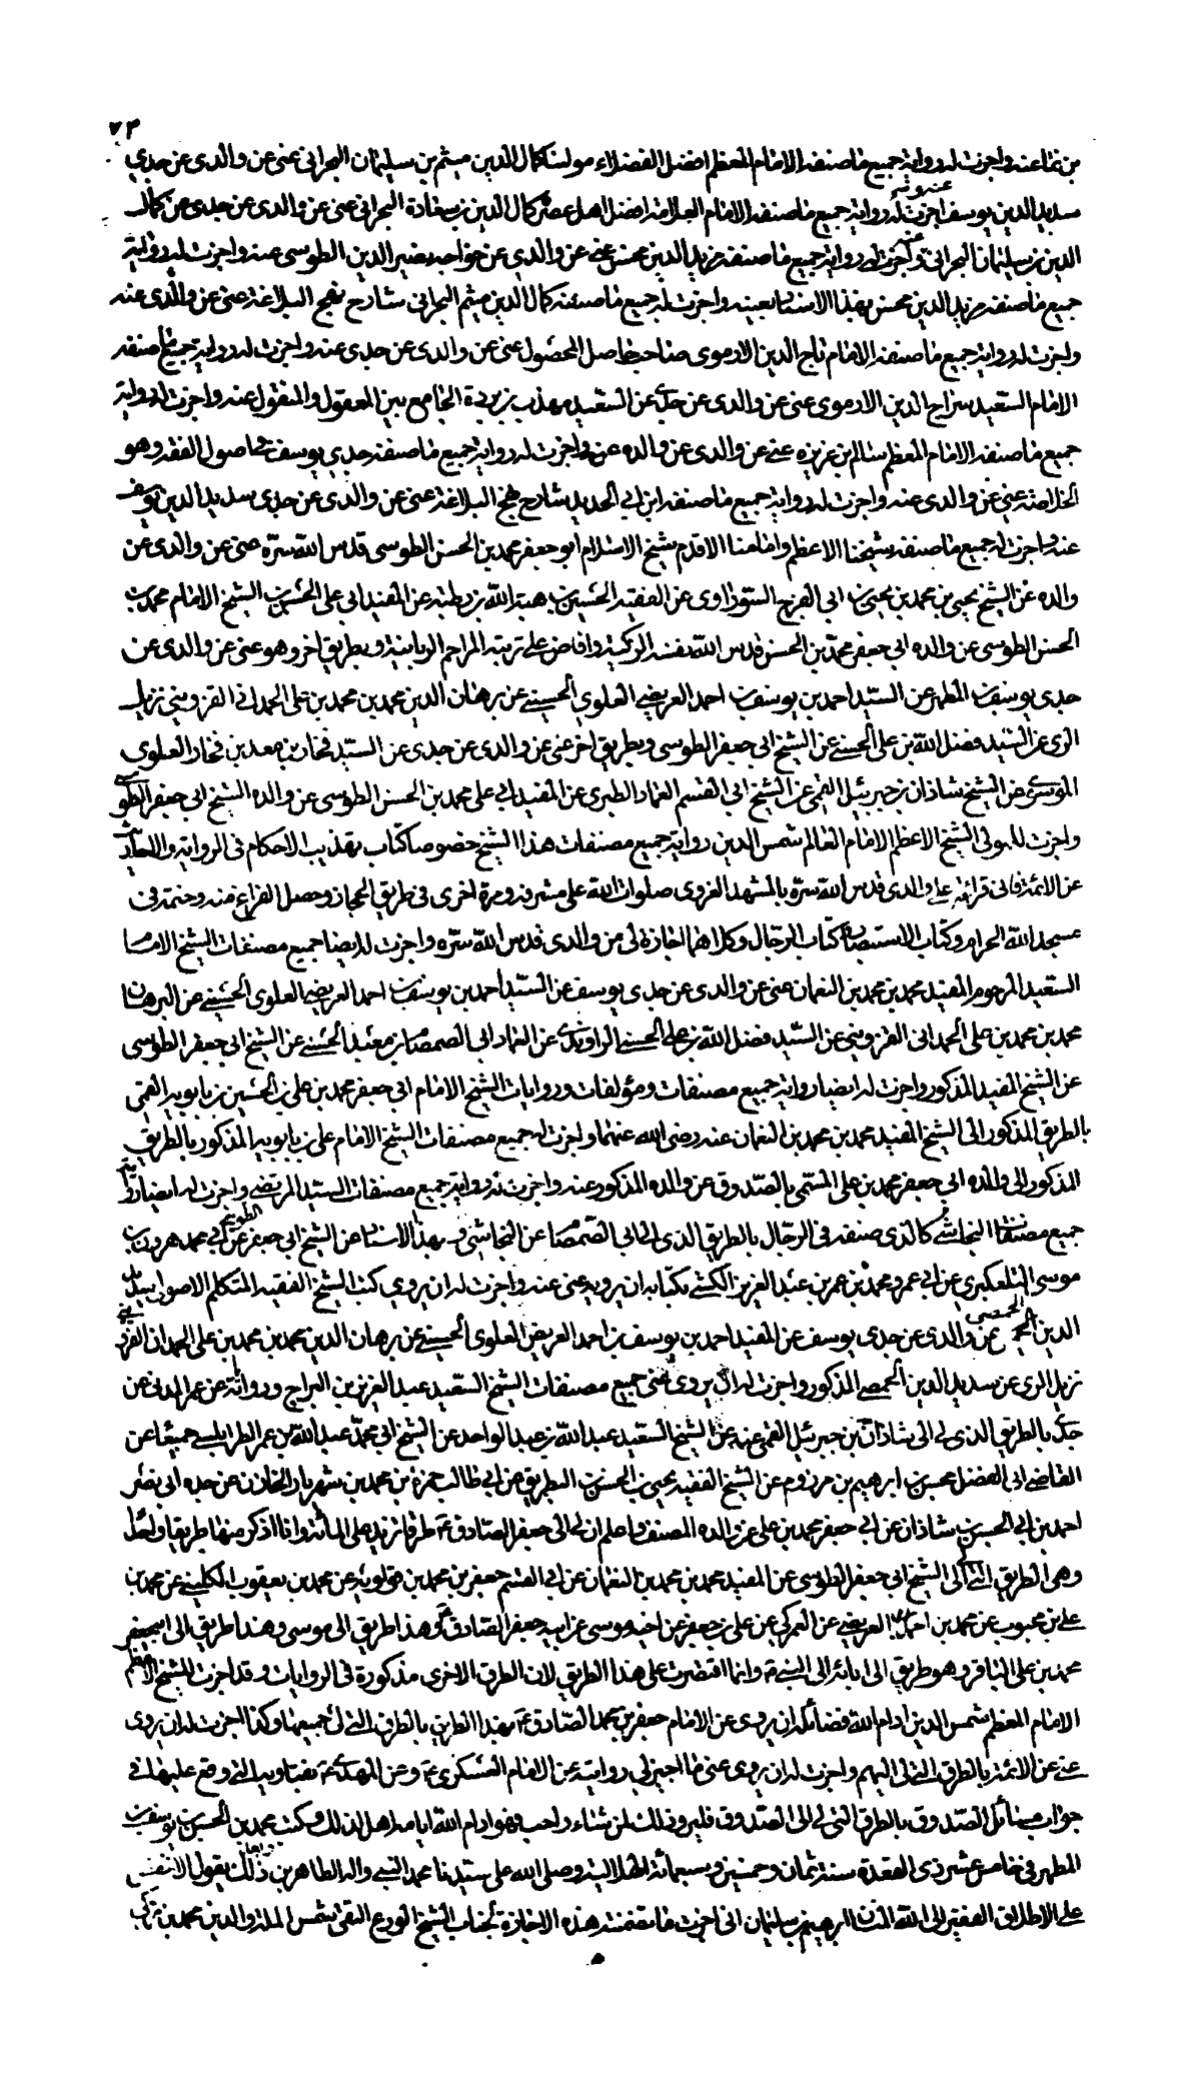 ٧٣
من نما عنه واجزت له رواية جميع ما صنفه الامام المعظم افضل الفضلاء مولنا كمال الدين ميثم بن سليمان البحراني عني عن والدي عن جدي
سديد الدين يوسف اجزت له رواية جميع ما صنفه الامام العلامة افضل اهل عصره كمال الدين بن سعادة البحراني عني عن والدي عن جدي عن كمال
الدين بن سليمان البحراني واجزت له رواية جميع ما صنفه مزيد الدين محسن عني عن والدي عن خواجه نصير الدين الطوسي عنه واجزت له رواية
جميع ما صنفه مزيد الدين محسن بهذا الاسناد بعينه واجزت له جميع ما صنفه كمال الدين ميثم البحراني شارح نهج البلاغة عني عن والدي عنه
واجزت له رواية جميع ما صنفه الامام تاج الدين الارموي صاحب حاصل المحصول عني عن والدي عن جدي عنه واجزت له رواية جميع ما صنفه
الامام السعيد سراج الدين الارموي عني عن والدي عن جدي عن السعيد مهذب بن ردة الجامع بين المعقول والمنقول عنه واجزت له رواية
جميع ما صنفه الامام المعظم سالم بن عزيزه عني عن والدي عن والده عنه واجزت له رواية جميع ما صنفه جدي يوسف في اصول الفقه وهو
الخلاصة عني عن والدي عنه واجزت له رواية جميع ما صنفه ابن ابي الحديد شارح نهج البلاغة عني عن والدي عن جدي سديد الدين يوسف
عنه واجزت له جميع ما صنفه شيخنا الاعظم وامامنا الاقدم شيخ الاسلام ابو جعفر محمد بن الحسن الطوسي قدس الله سره عني عن والدي عن
والده عن الشيخ يحيى بن محمد بن يحيى بن ابي الفرج السوراوي عن الفقيه الحسين بن هبة الله بن رطبة عن المفيد ابي علي الحسن بن الشيخ الامام محمد بن
الحسن الطوسي عن والده ابي جعفر محمد بن الحسن قدس الله نفسه الزكية وافاض على تربته المراحم الربانية وبطريق اخر وهو عني عن والدي عن
جدي يوسف بن المطهر عن السيد احمد بن يوسف بن احمد العريضي العلوي الحسيني عن برهان الدين محمد بن محمد بن علي الحمداني القزويني نزيل
الري عن السيد فضل الله بن علي الحسني عن الشيخ ابي جعفر الطوسي وبطريق اخر عني عن والدي عن جدي عن السيد فخار بن معد بن فخار العلوي
الموسوي عن الشيخ شاذان بن جبرئيل القمي عن الشيخ ابي القسم العماد الطبري عن المفيد ابي علي محمد بن الحسن الطوسي عن والده الشيخ ابي جعفر الطوسي
واجزت للمولى الشيخ الاعظم الامام العالم شمس الدين رواية جميع مصنفات هذا الشيخ خصوصا كتاب تهذيب الاحكام في الرواية والاحاديث
عن الائمة فاني قرأته على والدي قدس الله سره بالمشهد الغروي صلوات الله على مشرفه ومرة اخرى في طريق الحجاز وحصل الفراغ منه وختمه في
مسجد الله الحرام وكتاب الاستبصار وكتاب الرجال وكلاهما اجازة لي من والدي قدس الله سره واجزت له ايضا جميع مصنفات الشيخ الامام
السعيد المرحوم المفيد محمد بن محمد بن النعمان عني عن والدي عن جدي يوسف عن السيد احمد بن يوسف بن احمد العريضي العلوي الحسيني عن البرهان
محمد بن محمد بن علي الحمداني القزويني عن السيد فضل الله بن علي الحسني الراوندي عن العماد ابي الصمصام بن معبد الحسني عن الشيخ ابي جعفر الطوسي
عن الشيخ المفيد المذكور واجزت له ايضا رواية جميع مصنفات ومؤلفات وروايات الشيخ الامام ابي جعفر محمد بن علي بن الحسين بن بابويه القمي
بالطريق المذكور الى الشيخ المفيد محمد بن محمد بن النعمان عنه رضي الله عنهما واجزت له جميع مصنفات الشيخ الامام علي بن بابويه المذكور بالطريق
المذكور الى والده ابي جعفر محمد بن علي المسمى بالصدوق عن والده المذكور عنه واجزت له رواية جميع مصنفات السيد المرتضى واجزت له ايضا رواية
جميع مصنفات النجاشي كالذي صنفه في الرجال بالطريق الذي لي الى ابي الصمصام عن النجاشي وبهذا الاسناد عن الشيخ ابي جعفر الطوسي عن ابي محمد هرون بن
موسى التلعكبري عن ابي عمرو محمد بن عمر بن عبد العزيز الكشي بكتابه ان يرويه عني عنه واجزت له ان يروي كتب الشيخ الفقيه المتكلم الاصولي سديد
الدين الحمصي عن والدي عن جدي يوسف عن المفيد احمد بن يوسف بن احمد العريضي العلوي الحسيني عن برهان الدين محمد بن محمد بن علي الحمداني القزويني
نزيل الري عن سديد الدين الحمصي المذكور واجزت له ان يروي عني جميع مصنفات الشيخ السعيد عبد العزيز بن البراج ورواياته عن والدي عن
جدي بالطريق الذي لي الى شاذان بن جبرئيل القمي عنه عن الشيخ السعيد عبد الله بن عبد الواحد عن الشيخ ابي محمد عبد الله بن عمر الطرابلسي جميعا عن
القاضي ابي الفضل محسن بن ابرهيم بن مرزوم عن الشيخ الفقيه يحيى بن الحسن بن البطريق عن ابي طالب حمزة بن محمد بن شهريار الخازن عن جده ابي نصر
احمد بن ابي الحسن بن شاذان عن ابي جعفر محمد بن علي عن والده المصنف واعلم ان لي الى جعفر الصادق ع طرقا تزيد على المائة وانا اذكر منها طريقا واحدا
وهي الطريق التي لي الى الشيخ ابي جعفر الطوسي عن المفيد محمد بن محمد بن النعمان عن ابي القسم جعفر بن محمد بن قولويه عن محمد بن يعقوب الكليني عن محمد بن
علي بن محبوب عن محمد بن احمد العريضي عن العمركي عن علي بن جعفر عن اخيه موسى عن ابيه جعفر الصادق ع وهذا طريق الى موسى وهذا طريق الى ابيجعفر
محمد بن علي الباقر وهو طريق الى ابائه الى النبي ع وانما اقتصرت على هذا الطريق لان الطرق الاخرى مذكورة في الروايات وقد اجزت للشيخ الاعظم
الامام المعظم شمس الدين ادام الله فضائله ان يروي عن الامام جعفر بن محمد الصادق ع بهذا الطريق بالطرق التي لي جميعها وكذا اجزت له ان يروي
عني عن الائمة بالطرق التي لي اليهم واجزت له ان يروي عني ما اجيز لي روايته عن الامام العسكري ع وعن المهدي ع بفتاويه التي وقع عليها في
جواب مسائل الصدوق بالطرق التي لي الى الصدوق فليرو ذلك لمن شاء واحب فهو ادام الله ايامه اهل لذلك وكتب محمد بن الحسن بن يوسف بن
المطهر في خامس عشر ذي القعدة سنة ثمان وخمسين وسبعمائة الهلالية وصلى الله على سيدنا محمد النبي واله الطاهرين ذلك يقول الانفس
على الاطلاق الفقير الى الله المنان ابرهيم بن سليمان اني اجزت ما تضمنته هذه الاجازة لجناب الشيخ الورع التقي شمس الملة والدين محمد بن تركي